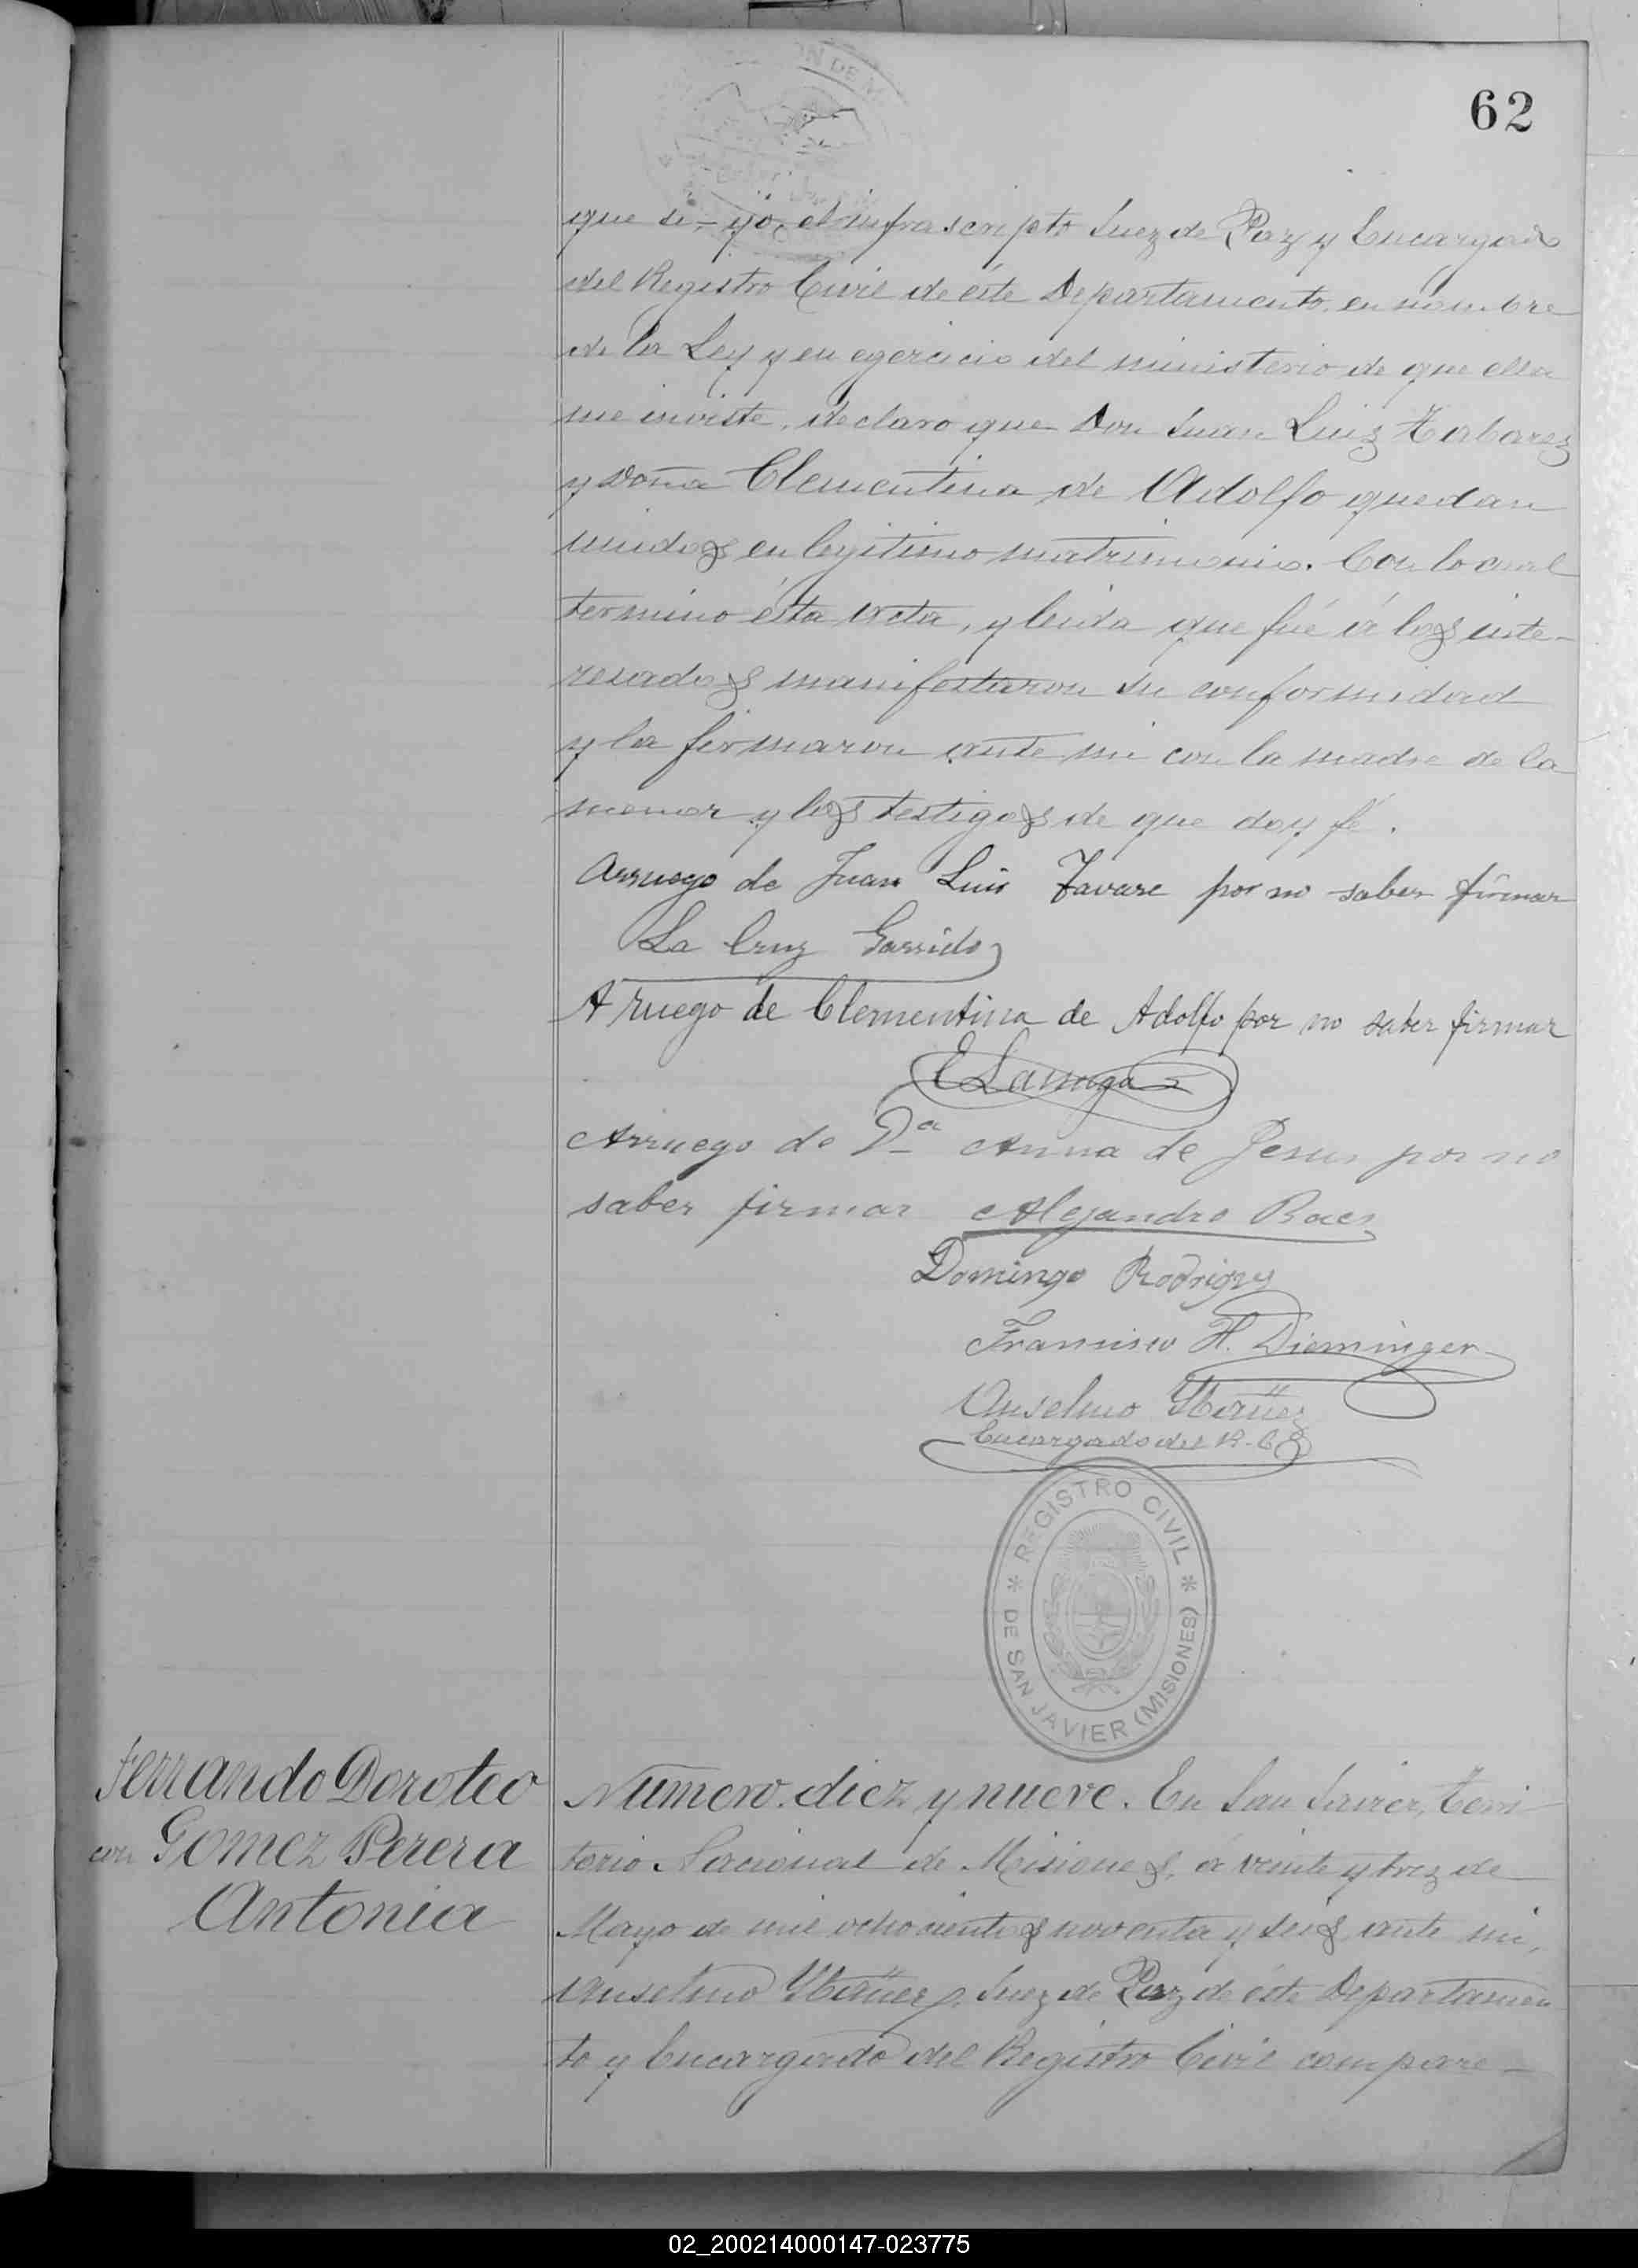 62
que si, – yo, el infrascripto Juez de Paz y Encargado
del Registro Civil de éste Departamento, en nombre
de la Ley y en egercicio del ministerio de que ella
me inviste, declaro que Don Juan Luiz Tabarez
y Doña Clementina de Adolfo quedan
unidos en legitimo matrimonio. Con lo cual
termino ésta acta, y leida que fué á los inte-
resados manifestaron su conformidad
y la firmaron ante mi con la madre de la
menor y los testigos de que doy fé.
Arruego de Juan Luis Tavare por no saber firmar
La Cruz Garrido
A ruego de Clementina de Adolfo por no saber firmar
Arruego de Dª Anna de Jesus por no
saber firmar Alejandro Baes
Domingo Rodrigez
Francisco H. Dieminger
Anselmo
Encargado del R. C.
REGISTRO CIVIL
DE SAN JAVIER (MISIONES)
Ferrando Doroteo
con Gomez Perera
Antonia
Número diez y nueve. En San Javier, Terri-
torio Nacional de Misiones, á veinte y trez de
Mayo de mil ochocientos noventa y seis ante mi,
Anselmo Juez de Paz de éste Departamen
to y Encargado del Registro Civil compare-
02_200214000147-023775